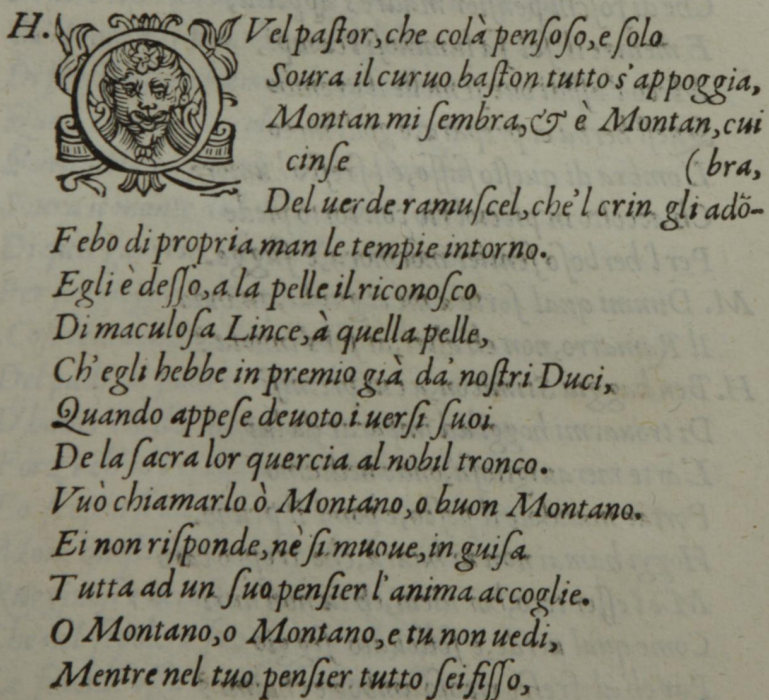 H. QVel paſtor, che colà penſoſo, e ſolo
Soura il curuo baſton tutto s'appoggia,
Montan mi ſembra, & è Montan, cui
cinſe (bra,
Del uerde ramuſcel, che'l crin gli adō-
Febo di propria man le tempie intorno.
Egli è deſſo, a la pelle il riconoſco
Di maculoſa Lince, à quella pelle,
Ch'egli hebbe in premio già da' noſtri Duci,
Quando appeſe deuoto i uerſi ſuoi
De la ſacra lor quercia al nobil tronco.
Vuò chiamarlo ò Montano, o buon Montano.
Ei non riſponde, nè ſi muoue, in guiſa
Tutta ad un ſuo penſier l'anima accoglie.
O Montano, o Montano, e tu non uedi,
Mentre nel tuo penſier tutto ſei fiſſo,